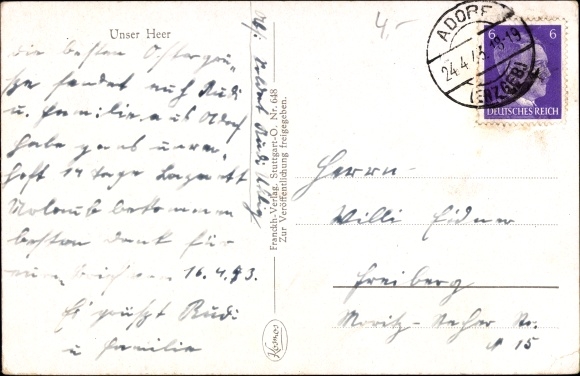 Unser Heer
die besten Ostergrü-
sse sendet euch Rudi
u. Familie aus Adorf
habe ganz unver-
hofft 14 Tage
bekommen
besten Dank für
16.4.43.
Es grüsst Rudi
u Familie
Abs. Soldat Rudi
Franckh-Verlag, Stuttgart-O. Nr. 648
Zur Veröffentlichung freigegeben.
Kosmos
4,-
ADORF
24.4.43.18-19
(ERZGEB)
6 6
DEUTSCHES REICH
Herrn
Willi
Freiberg
Moritz- Str.
N 15